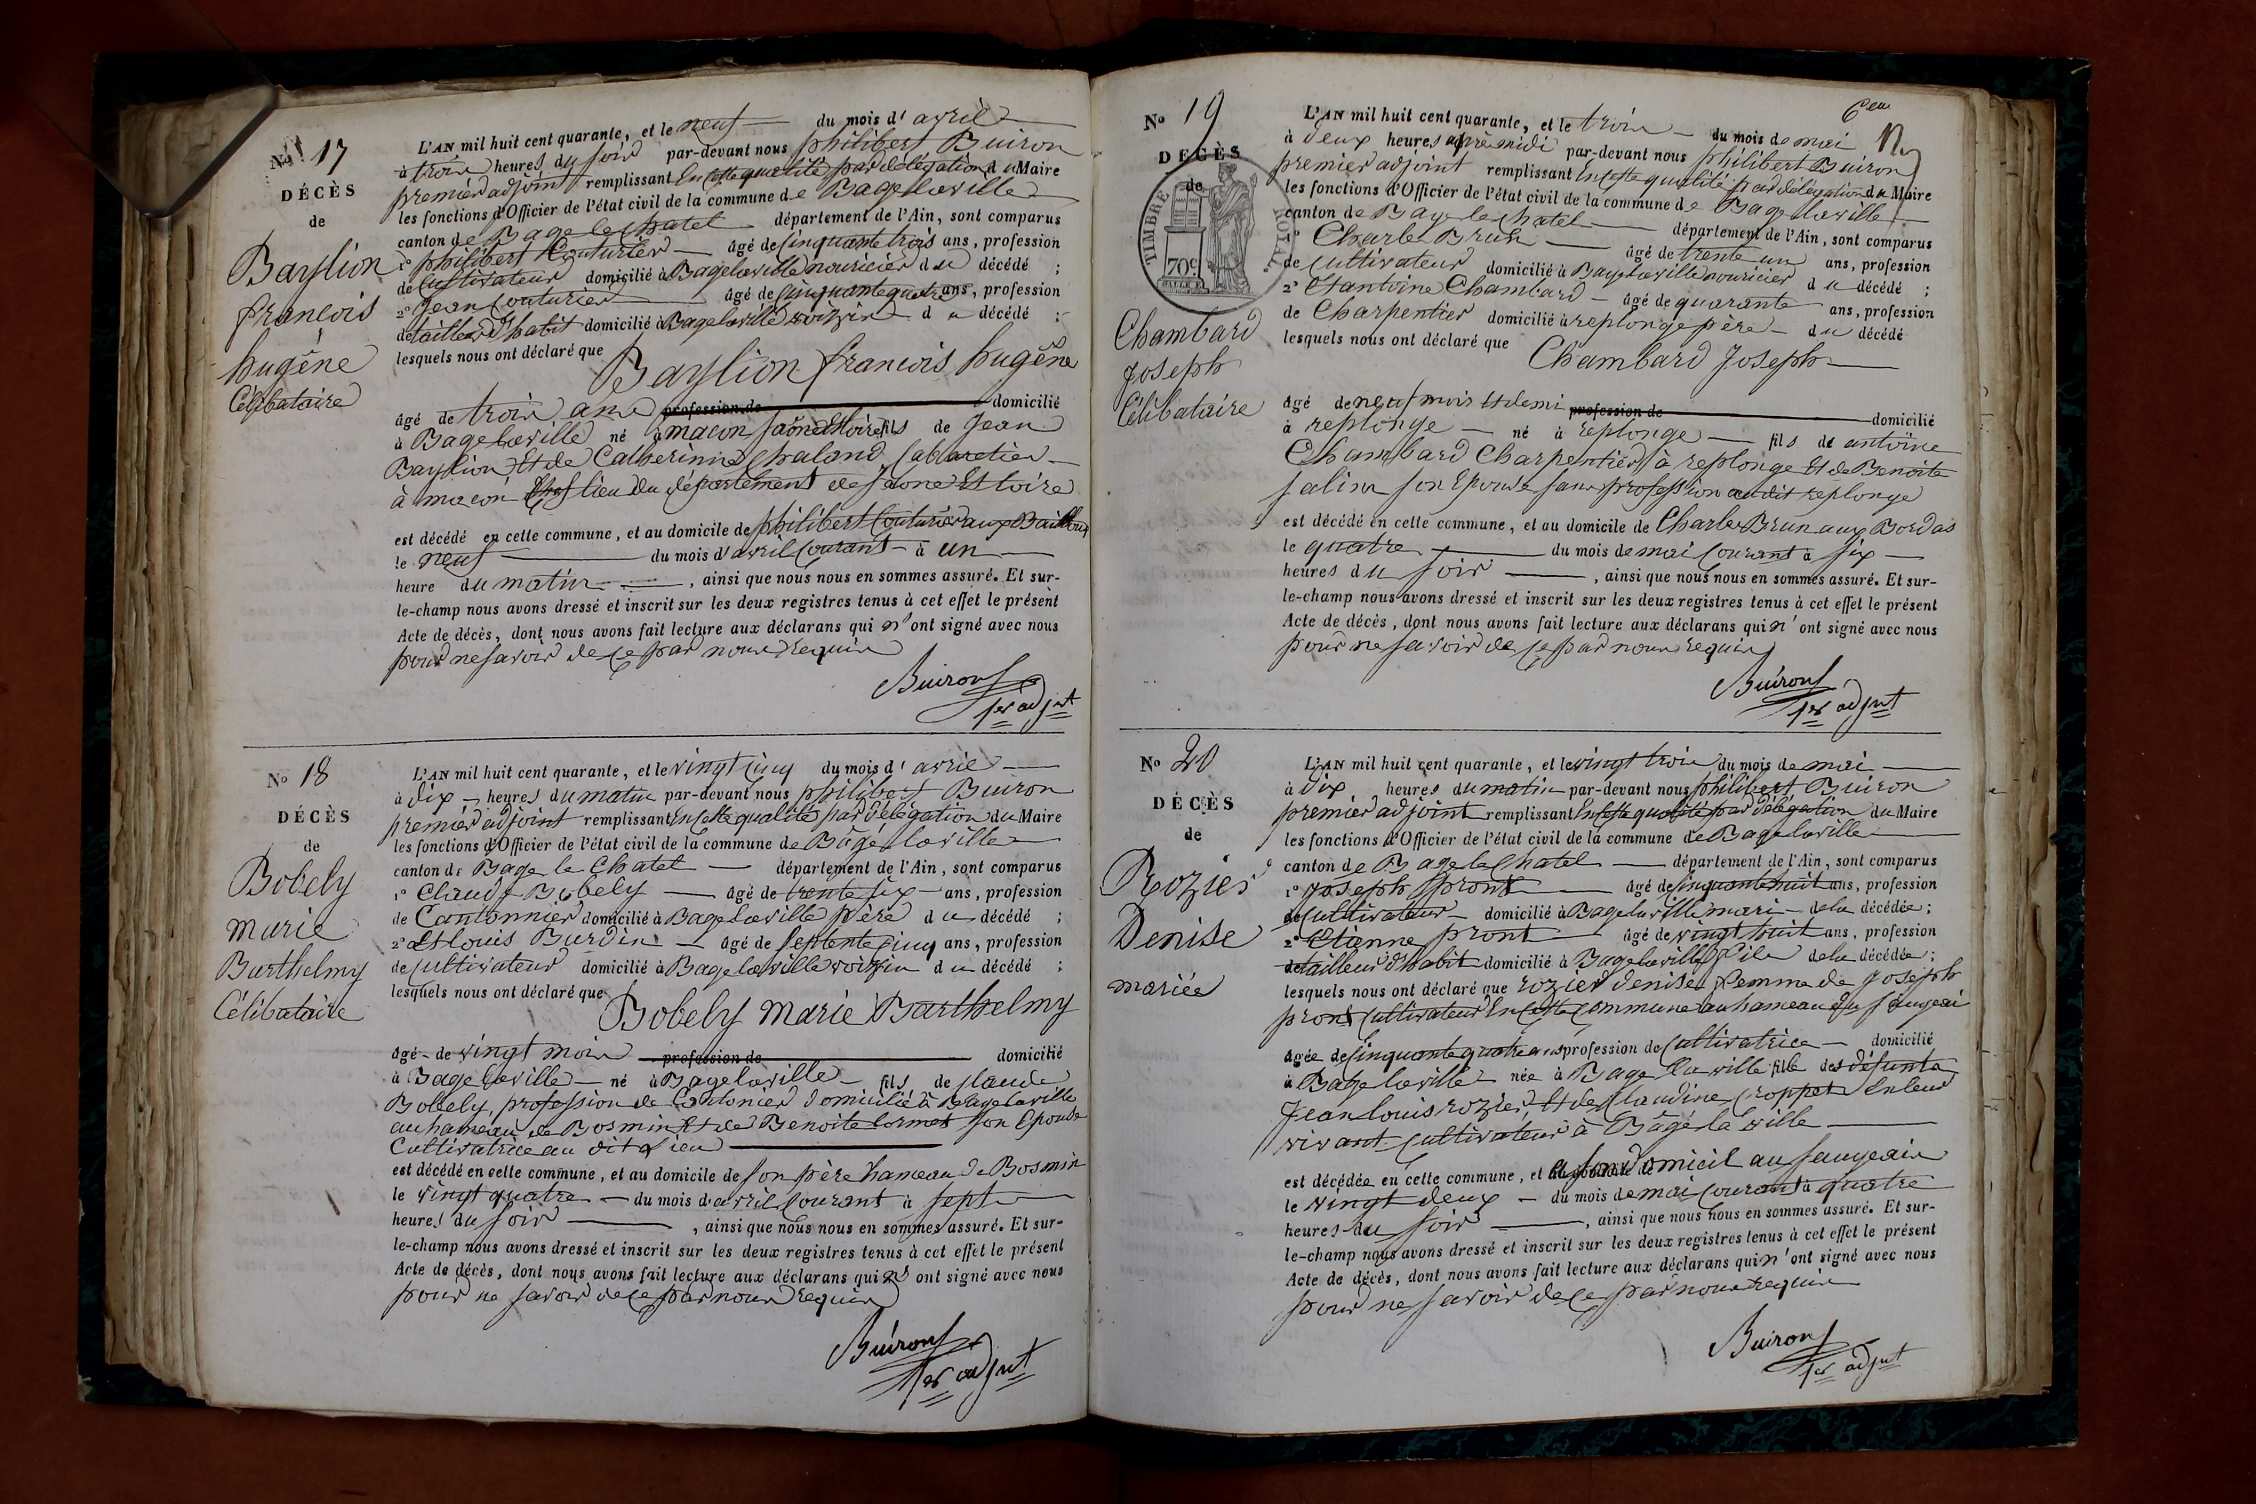 No 17
DÉCÈS
de
Baylion
francois
hugêne
Célibataire
L'AN mil huit cent quarante, et le neuf du mois d' avril
à trois heures du soir par-devant nous philibert Buiron
premier adjoint remplissant en cette qualité par délégation du Maire
les fonctions d'Officier de l'état civil de la commune de Bagelaville
canton de Bage le chatel département de l'Ain, sont comparus
1° philibert Couturier âgé de Cinquante trois ans, profession
de Cultivateur domicilié à Bagelaville nouricier du décédé ;
2° Jean Couturier âgé de Cinquante quatre ans, profession
de tailleur d'habit domicilié à Bagelaville voizin du décédé ;
lesquels nous ont déclaré que
Baylion francois hugêne
âgé de trois ans profession de domicilié
à Bagelaville né à macon saône et loire fils de Jean
Baylion et de Catherinne chaland Cabaretier
à macon chef lieu du departement de saone et loire
est décédé en cette commune, et au domicile de philibert Couturier aux Bailloux
le neuf du mois d'avril Courant à un
heure du matin, ainsi que nous nous en sommes assuré. Et sur-
le-champ nous avons dressé et inscrit sur les deux registres tenus à cet effet le présent
Acte de décès, dont nous avons fait lecture aux déclarans qui n'ont signé avec nous
pour ne savoir de ce par nous requis
Buiron
1er adjnt
No 18
DÉCÈS
de
Bobely
marie
Barthelmy
Célibataire
L'AN mil huit cent quarante, et le vingt cinq du mois d' avril
à dix heures du matin par-devant nous philibert Buiron
premier adjoint remplissant en cette qualité par délégation du Maire
les fonctions d'Officier de l'état civil de la commune de Bâgé laville
canton de Bage le Chatel département de l'Ain, sont comparus
1° Claude Bobely âgé de trente six ans, profession
de Cantonnier domicilié à Bagelaville père du décédé ;
2° et louis Burdin âgé de septente cinq ans, profession
de cultivateur domicilié à Bagelaville voizin du décédé ;
lesquels nous ont déclaré que
Bobely marie Barthelmy
âgé de vingt mois profession de domicilié
à Bagelaville né à Bagelaville fils de claude
Bobely, profession de Cantonier domicilié à Bagelaville
au hameau de Bosmin et de Benoite cormet son épouse
Cultivatrice au dit Lieu
est décédé en cette commune, et au domicile de son père hameau de Bosmin
le vingt quatre du mois d'avril courant à sept
heures du soir, ainsi que nous nous en sommes assuré. Et sur-
le-champ nous avons dressé et inscrit sur les deux registres tenus à cet effet le présent
Acte de décès, dont nous avons fait lecture aux déclarans qui n'ont signé avec nous
pour ne savoir de ce par nous requis
Buiron
1er adjnt
No 19
DÉCÈS
de
TIMBRE ROYAL
70c
Chambard
Joseph
Célibataire
L'AN mil huit cent quarante, et le trois du mois de mai
à deux heures après midi par-devant nous philibert Buiron
premier adjoint remplissant en cette qualité par délégation du Maire
les fonctions d'Officier de l'état civil de la commune de Bagelaville
canton de Bage le chatel département de l'Ain, sont comparus
1° Charle Brun âgé de trente un ans, profession
de Cultivateur domicilié à Bagelaville nouricier du décédé ;
2° et antoine Chambard âgé de quarante ans, profession
de Charpentier domicilié à replonge père du décédé
lesquels nous ont déclaré que
Chambard Joseph
âgé de neuf mois et demi profession de domicilié
à replonge né à replonge fils de antoine
Chambard Charpentier à replonge et de Benoite
salin son Epouse sans profession audit replonge
est décédé en cette commune, et au domicile de Charle Brun aux Bordas
le quatre du mois de mai courant à six
heures du soir, ainsi que nous nous en sommes assuré. Et sur-
le-champ nous avons dressé et inscrit sur les deux registres tenus à cet effet le présent
Acte de décès, dont nous avons fait lecture aux déclarans qui n'ont signé avec nous
pour ne savoir de ce par nous requis
Buiron
1er adjnt
No 20
DÉCÈS
de
Rozier
Denise
mariée
L'AN mil huit cent quarante, et le vingt trois du mois de mai
à dix heures du matin par-devant nous philibert Buiron
premier adjoint remplissant en cette qualité par délégation du Maire
les fonctions d'Officier de l'état civil de la commune de Bagelaville
canton de Bage le chatel département de l'Ain, sont comparus
1° Joseph pront âgé de Cinquante huit ans, profession
de Cultivateur domicilié à Bagelaville mari de la décédée ;
2° Etienne pront âgé de vingt huit ans, profession
de tailleur d'habit domicilié à Bagelaville fils de la décédée ;
lesquels nous ont déclaré que rozier denise femme de Joseph
pront Cultivateur en cette commune au hameau du saugeai
âgée de Cinquante quatre ans profession de Cultivatrice domicilié
à Bagelaville née à Bage la ville fille des défunts
Jean louis rozier et de Claudine croppet en leur
vivant cultivateur à Bâgé la ville
est décédée en cette commune, et a son domicil au saugeais
le vingt deux du mois de mai courant à quatre
heures du soir, ainsi que nous nous en sommes assuré. Et sur-
le-champ nous avons dressé et inscrit sur les deux registres tenus à cet effet le présent
Acte de décès, dont nous avons fait lecture aux déclarans qui n'ont signé avec nous
pour ne savoir de ce par nous requis
Buiron
1er adjnt